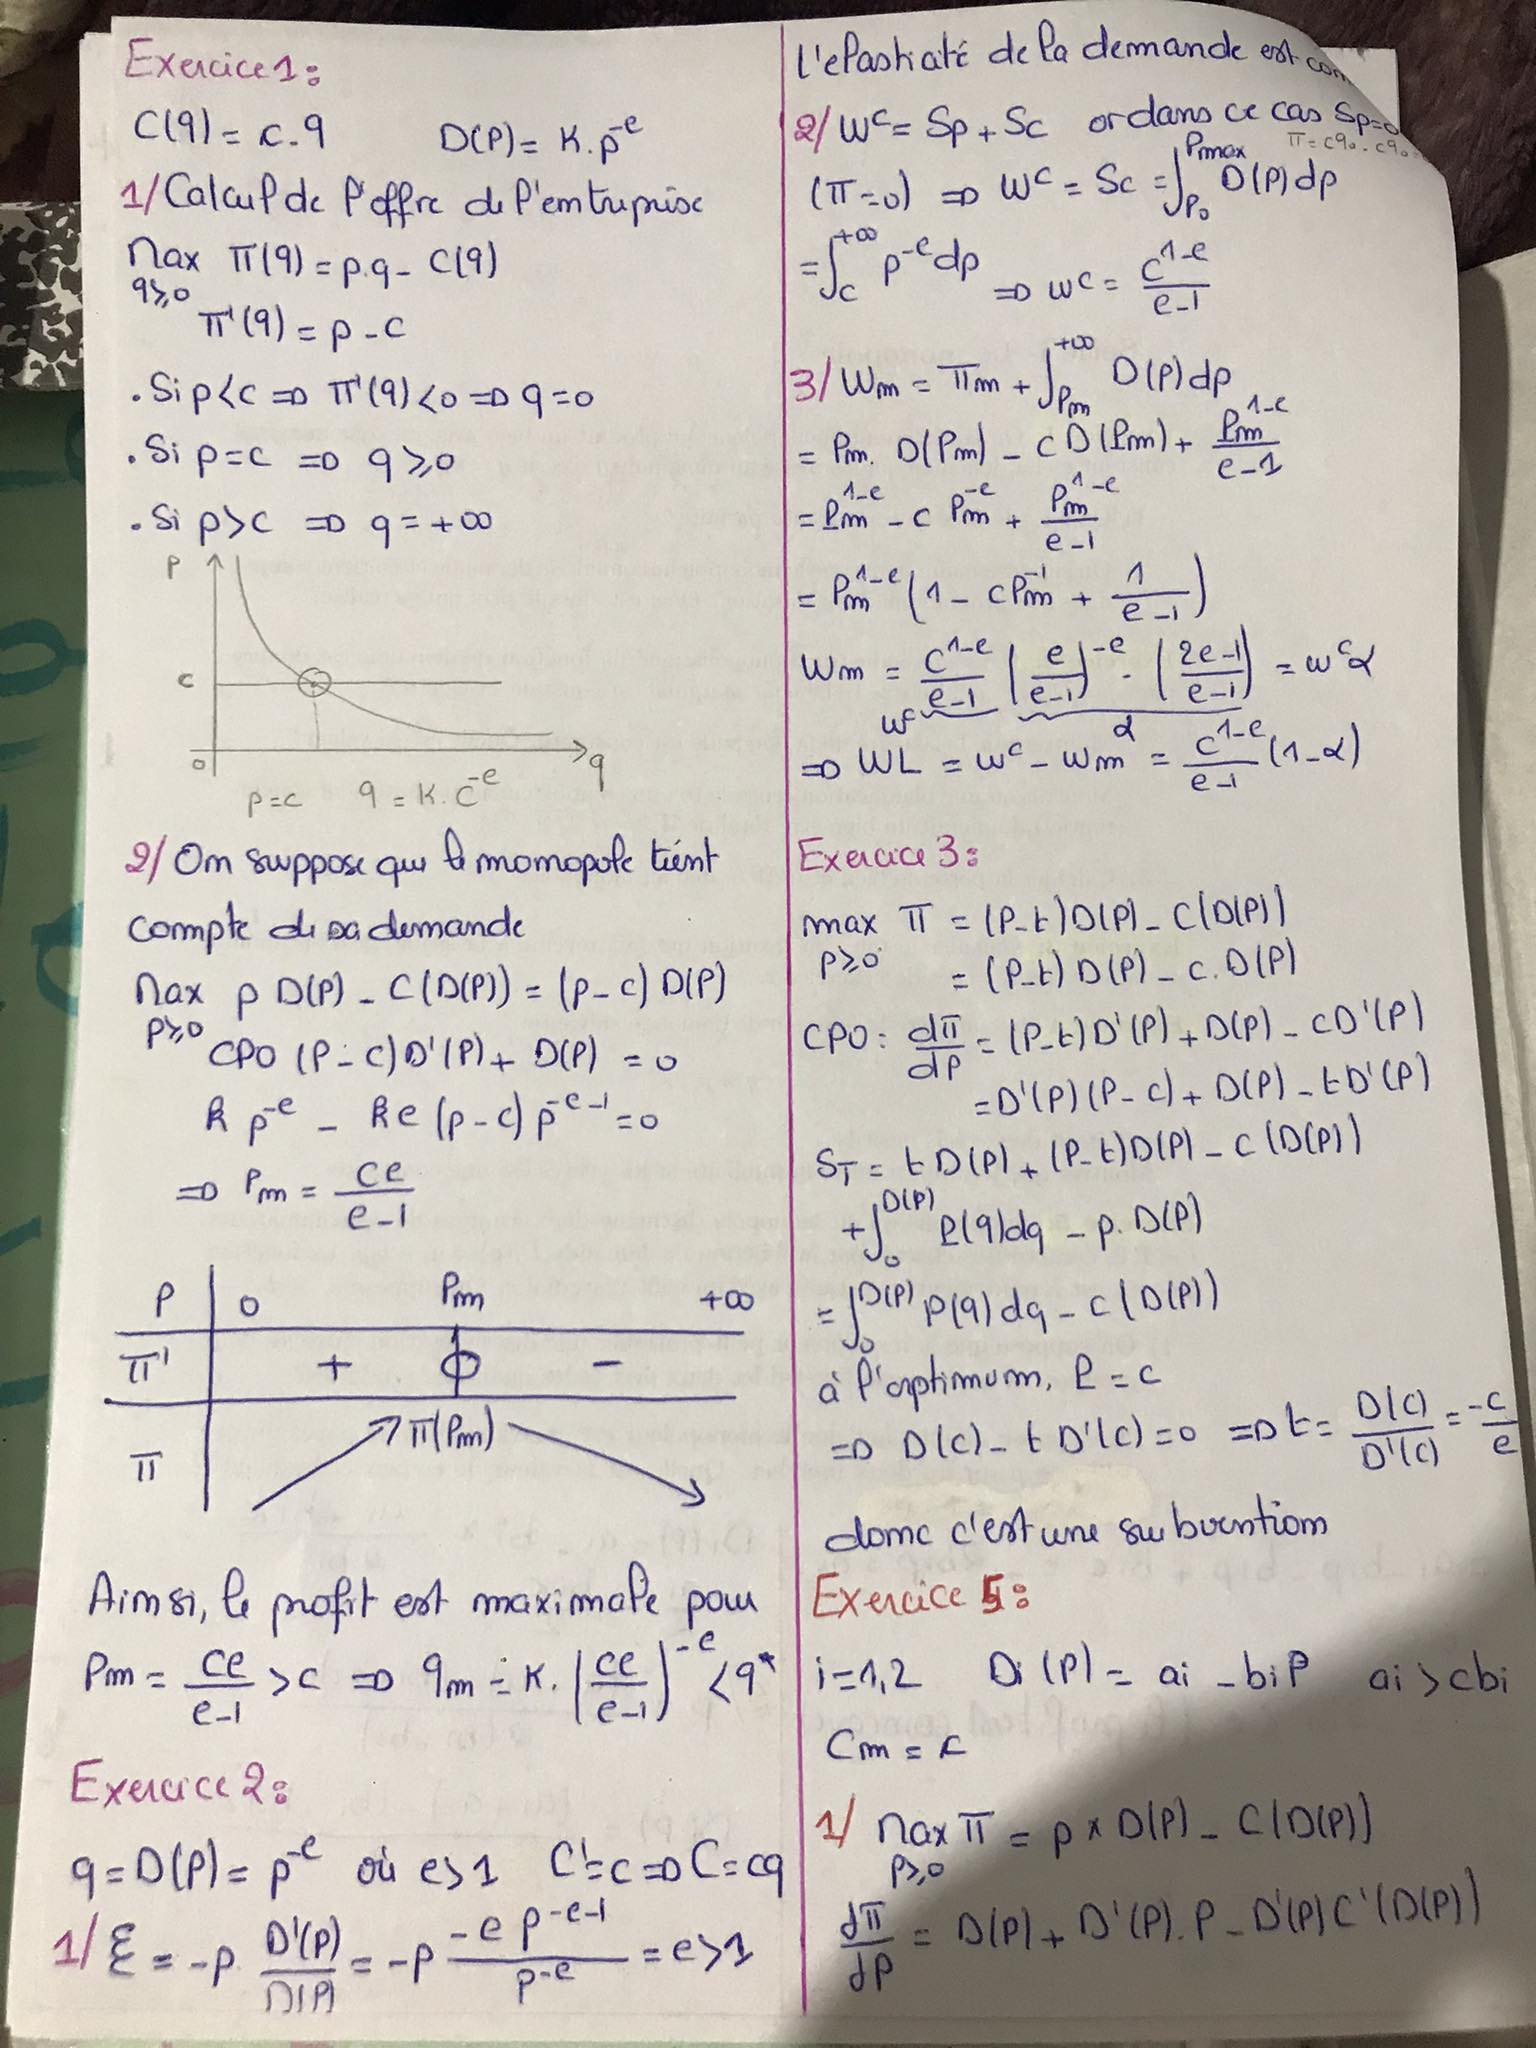 Exercice 1:
C(q) = c.q    D(P) = K.p^-e
1/ Calcul de l'offre de l'entreprise
Max π(q) = p.q - C(q)
q≥0
π'(q) = p - c
. Si p<c => π'(q)<0 => q=0
. Si p=c => q≥0
. Si p>c => q=+∞
P
c
0
q
p=c    q = K.c^-e
2/ On suppose que le monopole tient
compte de sa demande
Max p D(P) - C(D(P)) = (p-c) D(P)
p≥0
CPO (P-c)D'(P) + D(P) = 0
k p^-e - k e (p-c) p^-e-1 = 0
=> Pm = ce/e-1
P | 0 Pm +∞
π' | + 0 -
π | π(Pm)
Ainsi, le profit est maximale pour
Pm = ce/e-1 > c => qm = K.(ce/e-1)^-e < q*
Exercice 2:
q = D(P) = p^-e où e>1 C'=c => C=cq
1/ Ɛ = -p. D'(P)/D(P) = -p (-e p^-e-1)/p^-e = e>1
l'elasticité de la demande est
2/ W^c = Sp + Sc or dans ce cas Sp=0
π = cq0 - cq0
(π=0) => W^c = Sc = ∫_P0^Pmax D(P)dp
= ∫_c^+∞ p^-e dp => W^c = c^1-e/e-1
3/ Wm = πm + ∫_Pm^+∞ D(P)dp
= Pm. D(Pm) - c D(Pm) + Pm^1-e/e-1
= Pm^1-e - c Pm^-e + Pm^1-e/e-1
= Pm^1-e (1 - cPm^-1 + 1/e-1)
Wm = c^1-e/e-1 (e/e-1)^-e . (2e-1/e-1) = W^c α
W^c    α
=> WL = W^c - Wm = c^1-e/e-1 (1-α)
Exercice 3:
max π = (P-t)D(P) - C(D(P))
p≥0
= (P-t) D(P) - c.D(P)
CPO: dπ/dp = (P-t)D'(P) + D(P) - cD'(P)
= D'(P)(P-c) + D(P) - tD'(P)
S_T = t D(P) + (P-t)D(P) - C(D(P))
+ ∫_0^D(P) P(q)dq - p. D(P)
= ∫_0^D(P) P(q) dq - C(D(P))
à l'optimum, P = c
=> D(c) - t D'(c) = 0 => t = D(c)/D'(c) = -c/e
donc c'est une subvention
Exercice 5:
i=1,2    Di(P) = ai - biP    ai > cbi
Cm = c
1/ Max π = p × D(P) - C(D(P))
p≥0
dπ/dp = D(P) + D'(P).P - D'(P)C'(D(P))